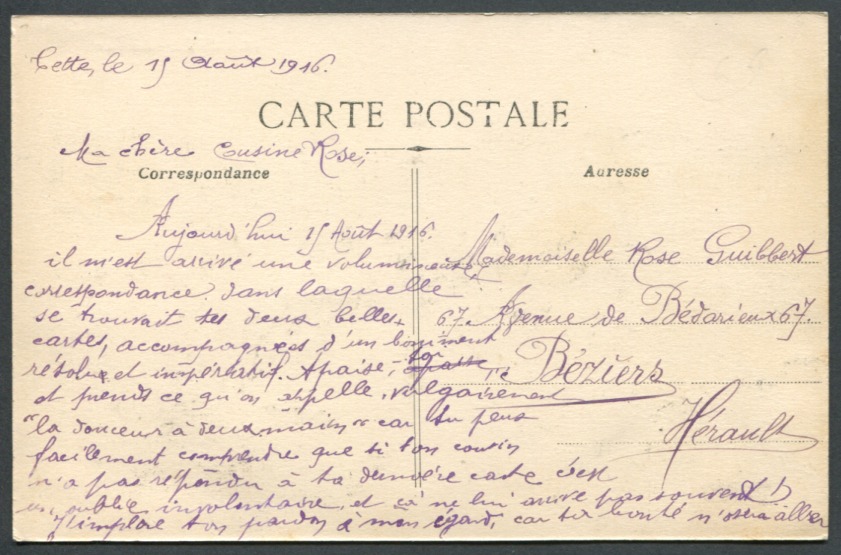 Cette, le 15 Août 1916.
CARTE POSTALE
Ma chère Cousine Rose,
Correspondance
Aujourd'hui 15 Août 1916.
il m'est arrivé une volumineuse
correspondance. dans laquelle
se trouvait tes deux belles
cartes, accompagnées d'un boniment
résolu et impératif. Apaise-toi
et prends ce qu'on appelle, vulgairement
"la douceur à deux mains" car tu peux
facilement comprendre que si ton cousin
n'a pas répondu à ta dernière carte c'est
un oublie involontaire, et ça ne lui arrive pas souvent!
J'implore ton pardon à mon égard, car ta bonté n'osera aller
Adresse
Mademoiselle Rose Guibbert
67. Avenue de Bédarieux 67.
Béziers
Hérault